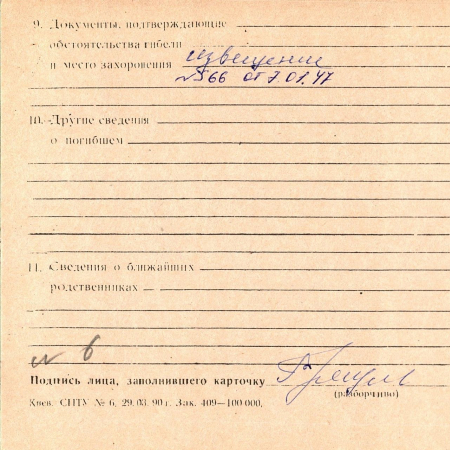 9. Документы, подтверждающие
обстоятельства гибели
и место захоронения извещение
№ 566 от 7.01.47
10. Другие сведения
о погибшем
11. Сведения о ближайших
родственниках
№ 6
Подпись лица, заполнившего карточку
(разборчиво)
Киев. СПТУ № 6, 29.03.90 г. Зак. 409—100 000.